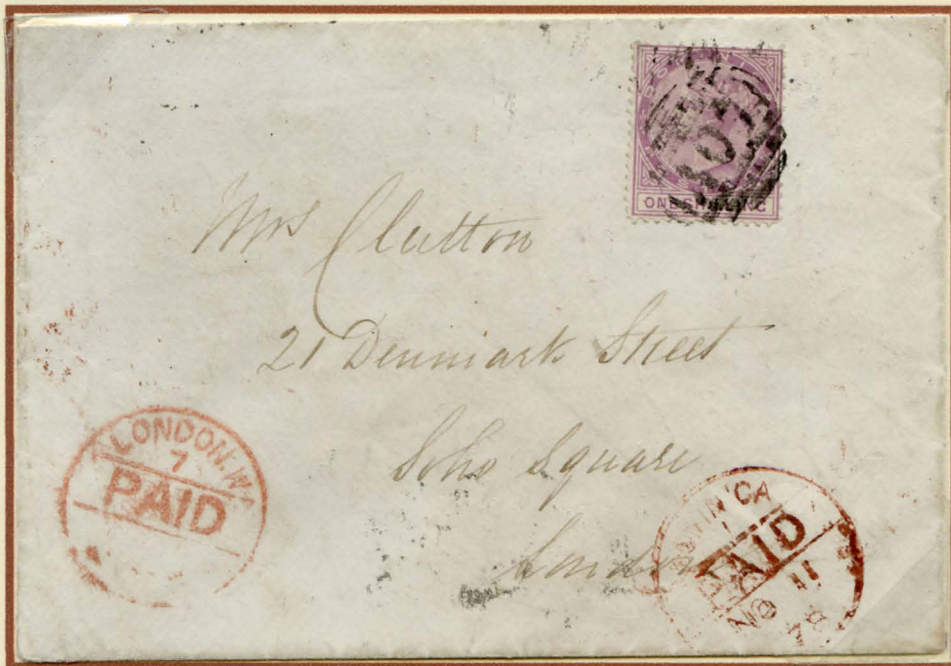 ONE SHILLING
Mrs Clutton
21 Denmark Street
Soho Square
London
LONDON.W.
7
PAID
DOMINICA
PAID
NO 11
78